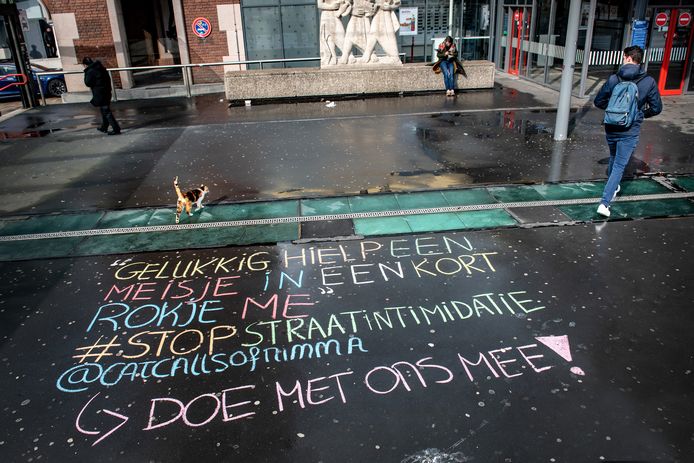 "GELUKKIG HIELP EEN
MEISJE IN EEN KORT
ROKJE ME"
#STOPSTRAATINTIMIDATIE
@CATCALLSOFNIMMA
DOE MET ONS MEE!